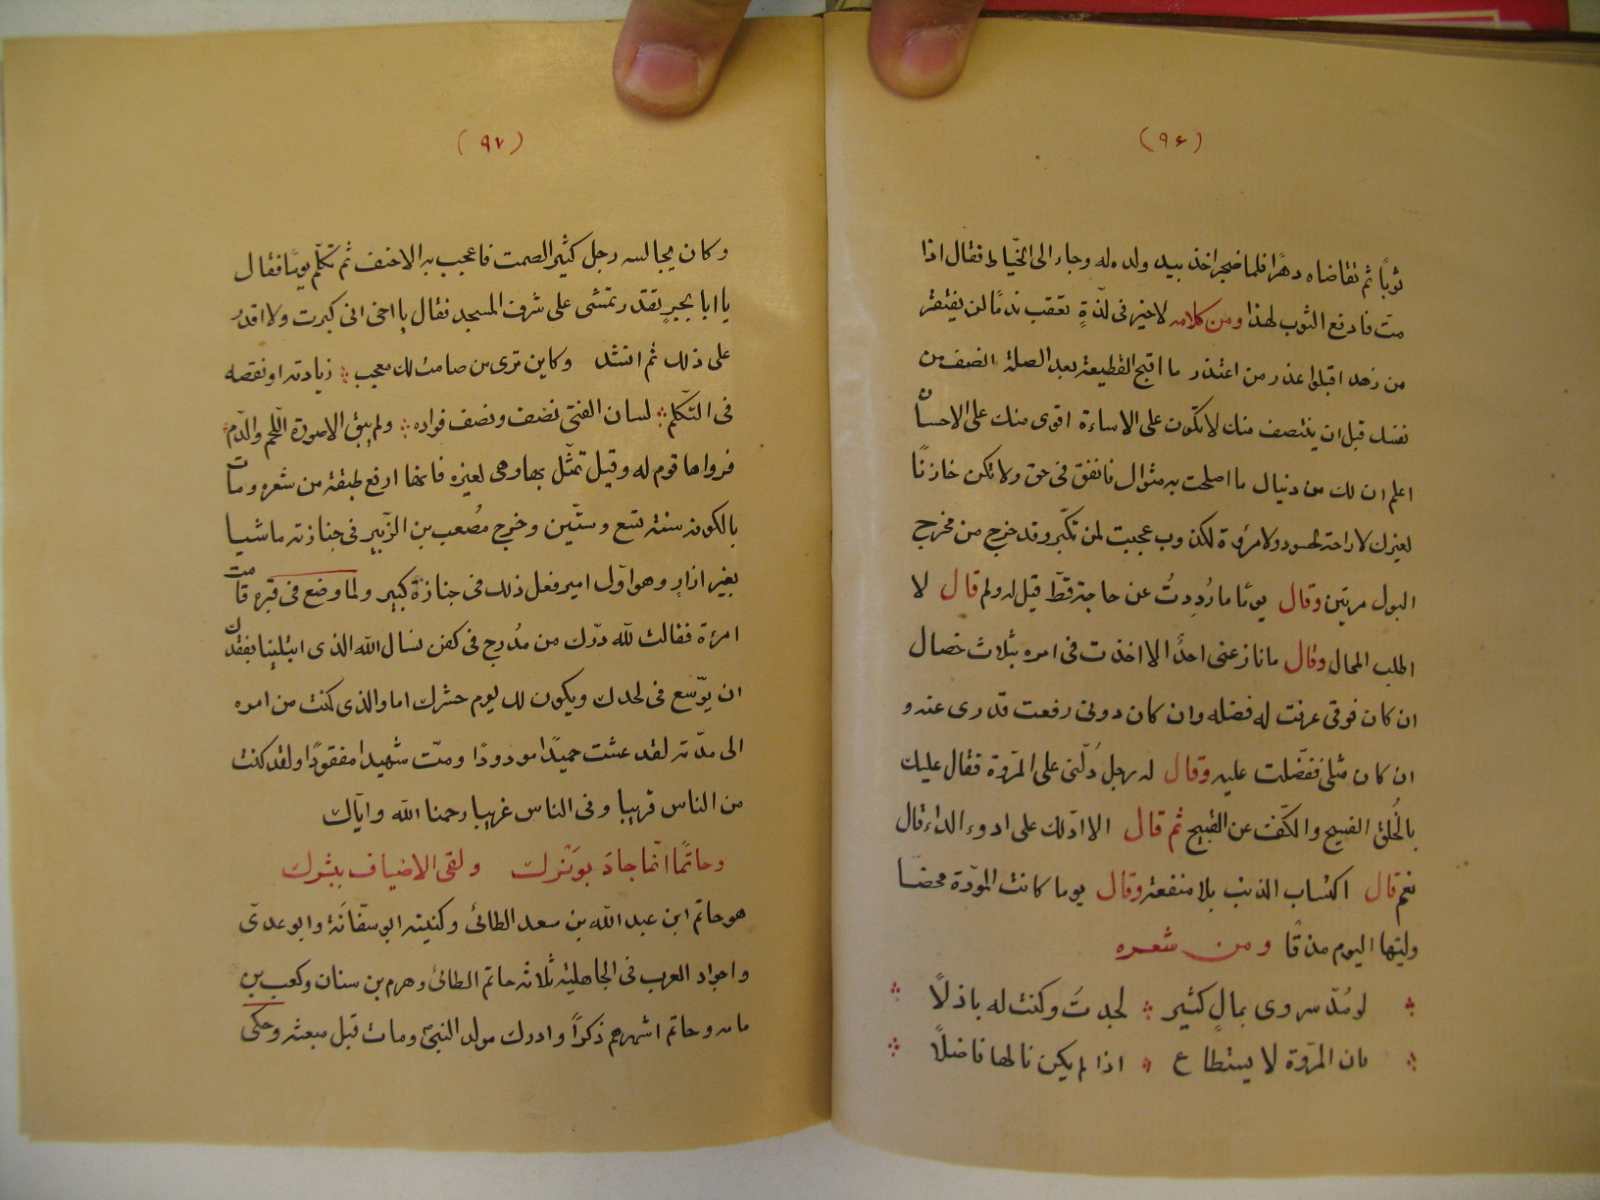 (٩۶)
ثوبًا ثم تقاضاه دهرًا فلما ضجر اخذ بيد ولده له وجاء الى الخيّاط فقال اذا
متّ فادفع الثوب لهذا ومن كلامه لا خير فى لذّةٍ تعقب ندمًا لن يفتقر
من زهد اقبلوا عذر من اعتذر ما اقبح القطيعة بعد الصلة انصف من
نفسك قبل ان ينتصف منك لا تكون على الاساءة اقوى منك على الاحسان
اعلم ان لك من دنياك ما اصلحت به مثواك فانفق فى حق ولا تكن خازنًا
لغيرك لا راحة لحسود ولا مرؤة لكذوب عجبت لمن تكبّر وقد خرج من مخرج
البول مرتين وقال يومًا ما رُدِدتُ عن حاجة قطّ قيل له ولم قال لا
اطلب المحال وقال ما نازعنى احدٌ الا اخذت فى امره بثلاث خصال
ان كان فوقى عرفت له فضله وان كان دونى رفعت قدرى عنه و
ان كان مثلى تفضّلت عليه وقال له رجل دُلّنى على المروّة فقال عليك
بالخُلق الفسيح والكفّ عن القبيح ثم قال الا ادّلك على ادوء الداء قال
نعم قال اكتساب الذنب بلا منفعة وقال يوما كانت المودّة محضًا
وليتها اليوم مذقًا ومن شعره
لو مُدّ سروى بمالٍ كثير لجدتُ وكنت له باذلًا
فان المروّة لا يستطاع اذا لم يكن نالها فاضلًا
(٩٧)
وكان يجالسه رجل كثير الصمت فاعجب به الاحنف ثم تكلّم يومًا فقال
يا ابا بحر يقدر تمشى على شرف المسجد فقال يا اخى انى كبرت ولا اقدر
على ذلك ثم انشد وكاين ترى من صامت لك معجب زيادته او نقصه
فى التكلّم لسان الفتى نصف ونصف فواده ولم يبق الا صورة اللّحم والدّم
فرواها قوم له وقيل تمثّل بها وهى لغيره فانها ارفع طبقة من شعره ومات
بالكوفه سنة تسع وستّين وخرج مُصعب بن الزّبير فى جنازته ماشيا
بغير ازار وهو اوّل امير فعل ذلك فى جنازة كبير ولما وضع فى قبره قامت
امرءة فقالت للّه درّك من مُدرج فى كفن نسال الله الذى ابتلينا بفقدك
ان يوّسع فى لحدك ويكون لك يوم حشرك اما والذى كنت من امره
الى مدّته لقد عشت حميدًا مودودًا ومتّ شهيدا مفقودًا ولقد كنت
من الناس قريبا وفى الناس غريبا رحمنا اللّه وايّاك
وحاتمًا انّما جادَ بوَفرك ولقى الاضياف ببشرك
هو حاتم ابن عبد اللّه بن سعد الطائى وكنيته ابو سفّانَة وابو عدىّ
واجواد العرب فى الجاهلية ثلاثه حاتم الطائى وهرم بن سنان وكعب بن
مامه وحاتم اشهرهم ذكرًا وادرك مولد النبىّ ومات قبل مبعثه وحكى